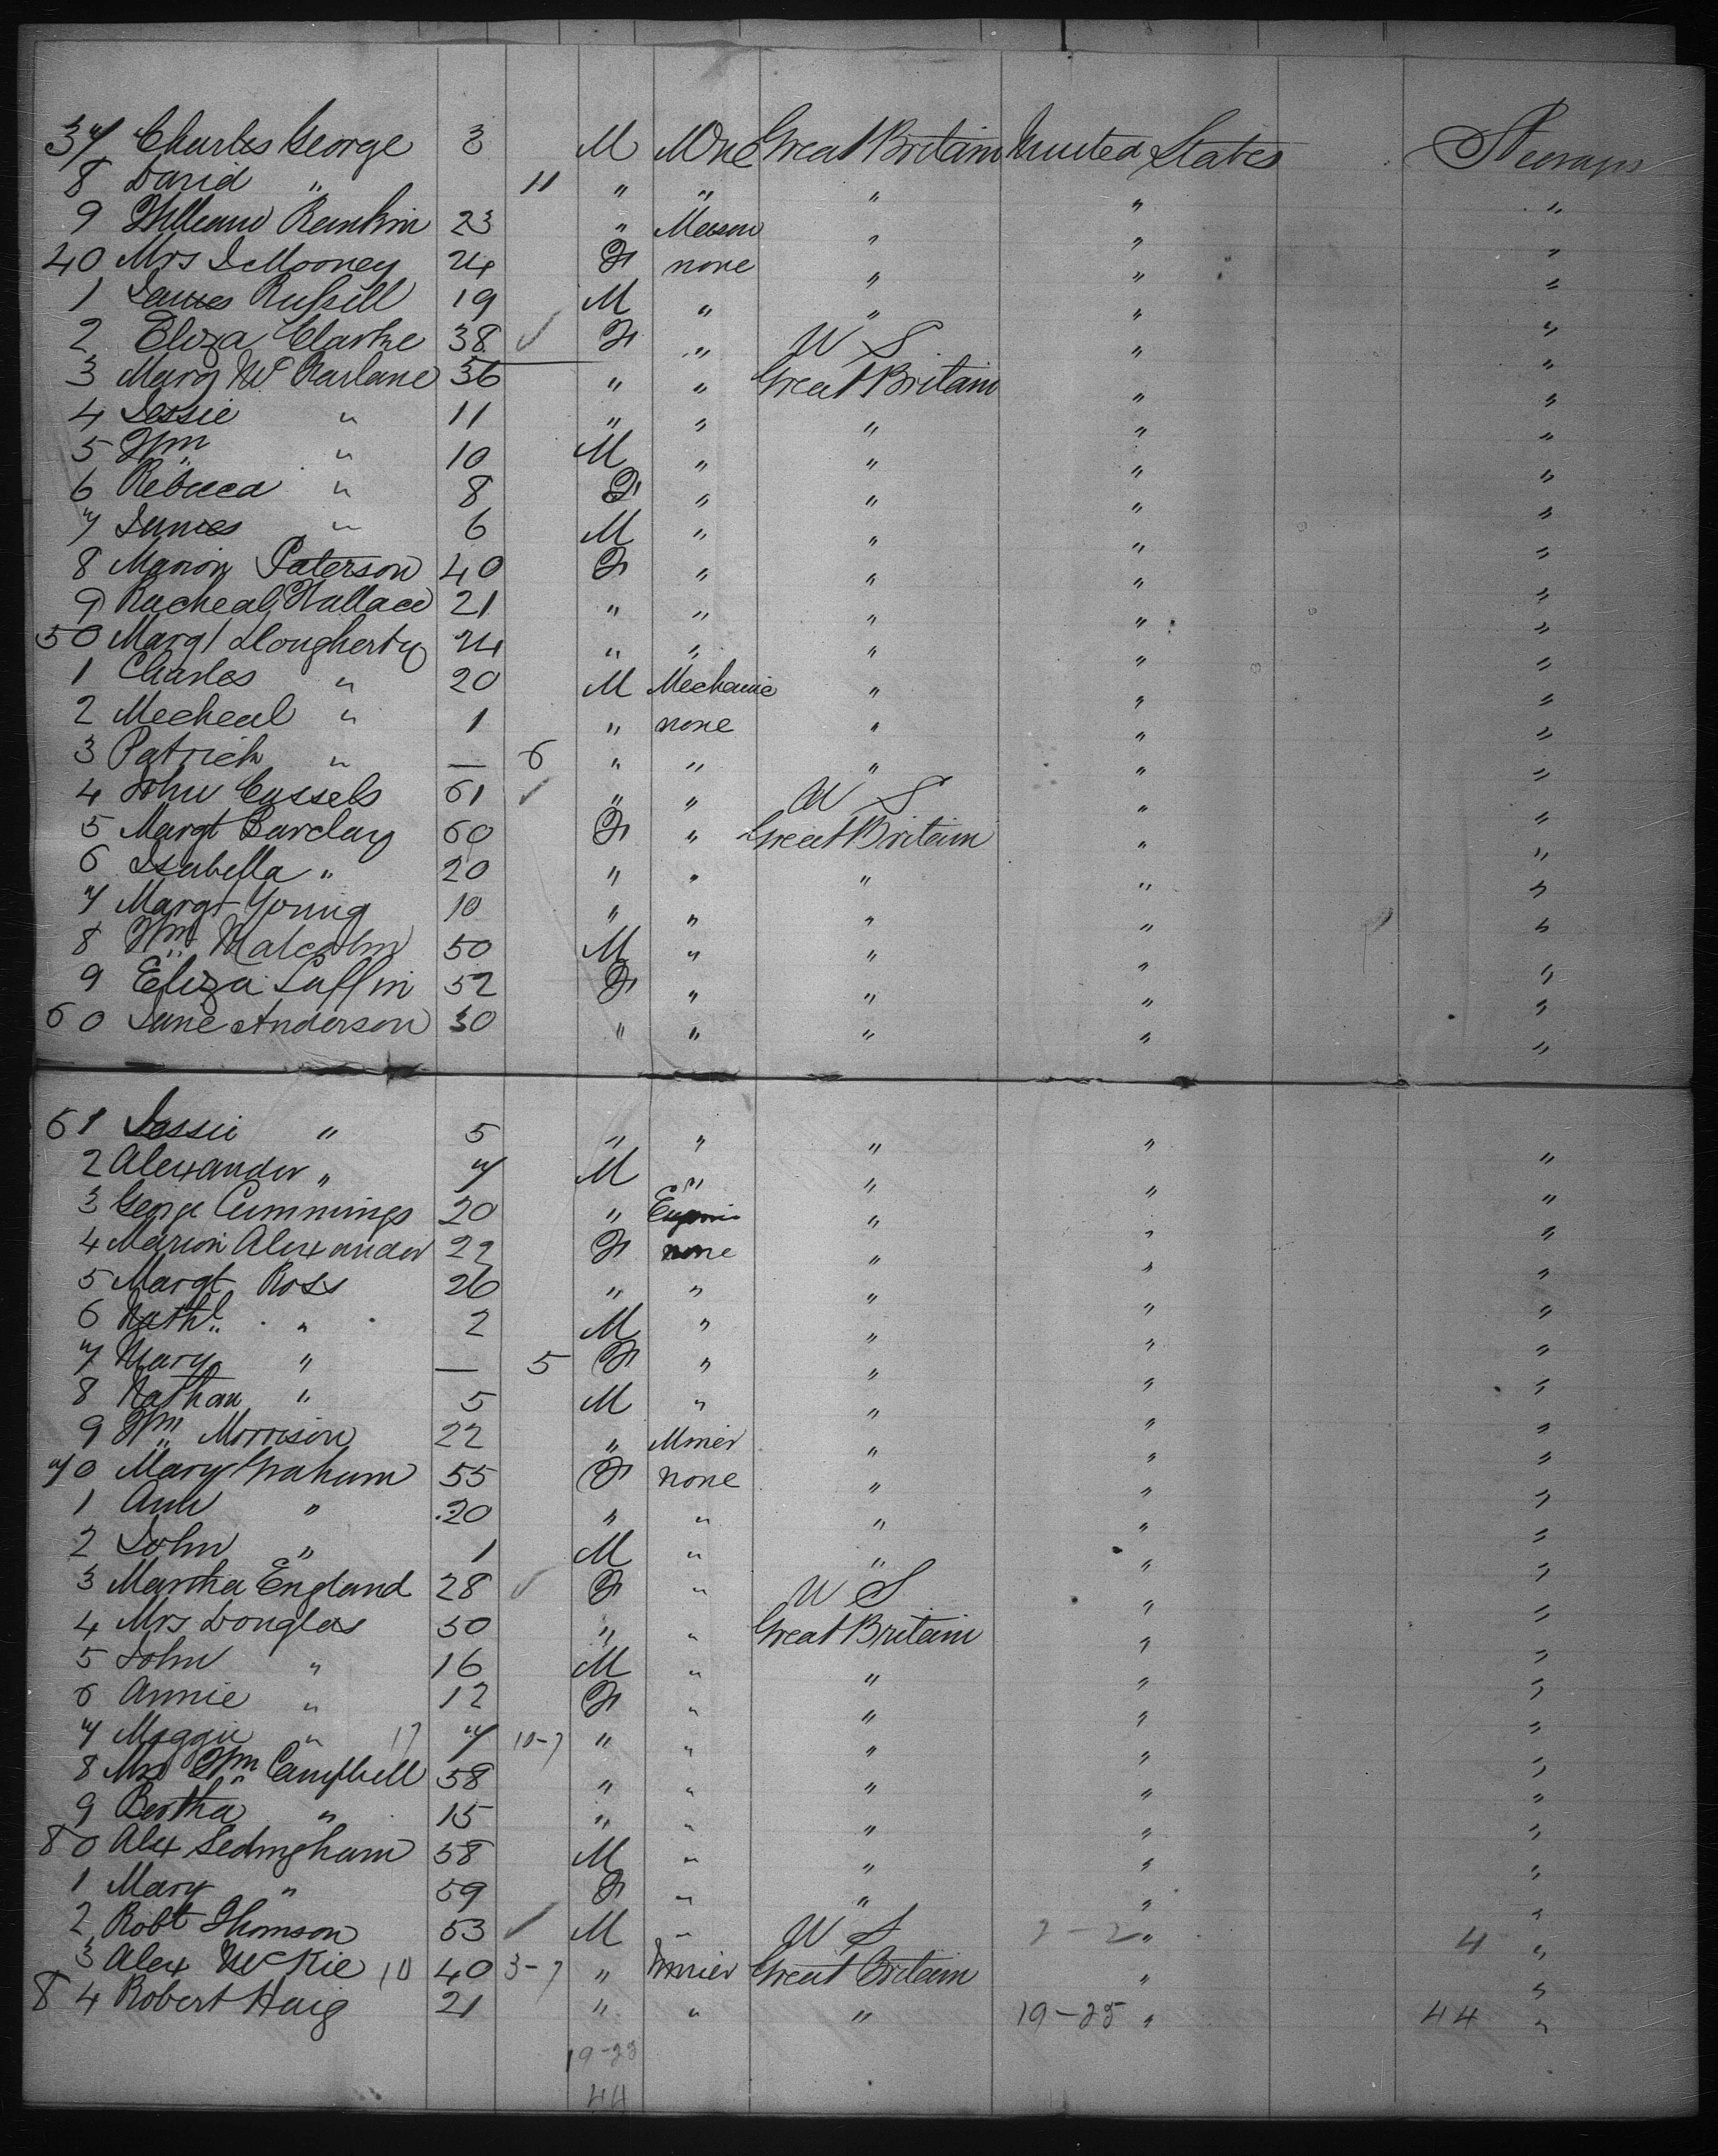 37 Charles George 3 M None Great Britain United States Steerage
8 David " 11 " " " " "
9 William Rankin 23 " Mason " " "
40 Mrs J Mooney 24 F none " " "
1 James Russell 19 M " " " "
2 Eliza Clarke 38 ✓ F " U S " "
3 Marg McFarlane 36 " " Great Britain " "
4 Jessie " 11 " " " " "
5 Wm " 10 M " " " "
6 Rebecca " 8 F " " " "
7 James " 6 M " " " "
8 Marion Paterson 40 F " " " "
9 Racheal Wallace 21 " " " " "
50 Margt Dougherty 24 " " " " "
1 Charles " 20 M Mechanic " " "
2 Micheal " 1 " none " " "
3 Patrick " — 6 " " " " "
4 John Cassels 61 ✓ " " U S " "
5 Margt Barclay 60 F " Great Britain " "
6 Isabella " 20 " " " " "
7 Margt Young 10 " " " " "
8 Wm Malcolm 50 M " " " "
9 Eliza Laffin 52 F " " " "
60 Jane Anderson 30 " " " " "
61 Jessie " 5 " " " " "
2 Alexander " 7 M " " " "
3 George Cummings 20 " " " "
4 Marion Alexander 22 F none " " "
5 Margt Ross 26 " " " " "
6 Nathl " 2 M " " " "
7 Mary " — 5 F " " " "
8 Nathan " 5 M " " " "
9 Wm Morrison 22 " Miner " " "
70 Mary Graham 55 F none " " "
1 Ann " 20 " " " " "
2 John " 1 M " " " "
3 Martha England 28 ✓ F " U S " "
4 Mrs Douglas 50 " " Great Britain " "
5 John " 16 M " " " "
6 Annie " 12 F " " " "
7 Maggie " 17 7 10-7 " " " " "
8 Mrs Wm Campbell 58 " " " " "
9 Bertha " 15 " " " " "
80 Alex Sedingham 58 M " " " "
1 Mary " 59 F " " " "
2 Robt Thomson 53 ✓ M " U S 2-2 " 4 "
3 Alex McKie 10 40 3-7 " Miner Great Britain " "
84 Robert Haig 21 " " " 19-25 " 44 "
19-23
44